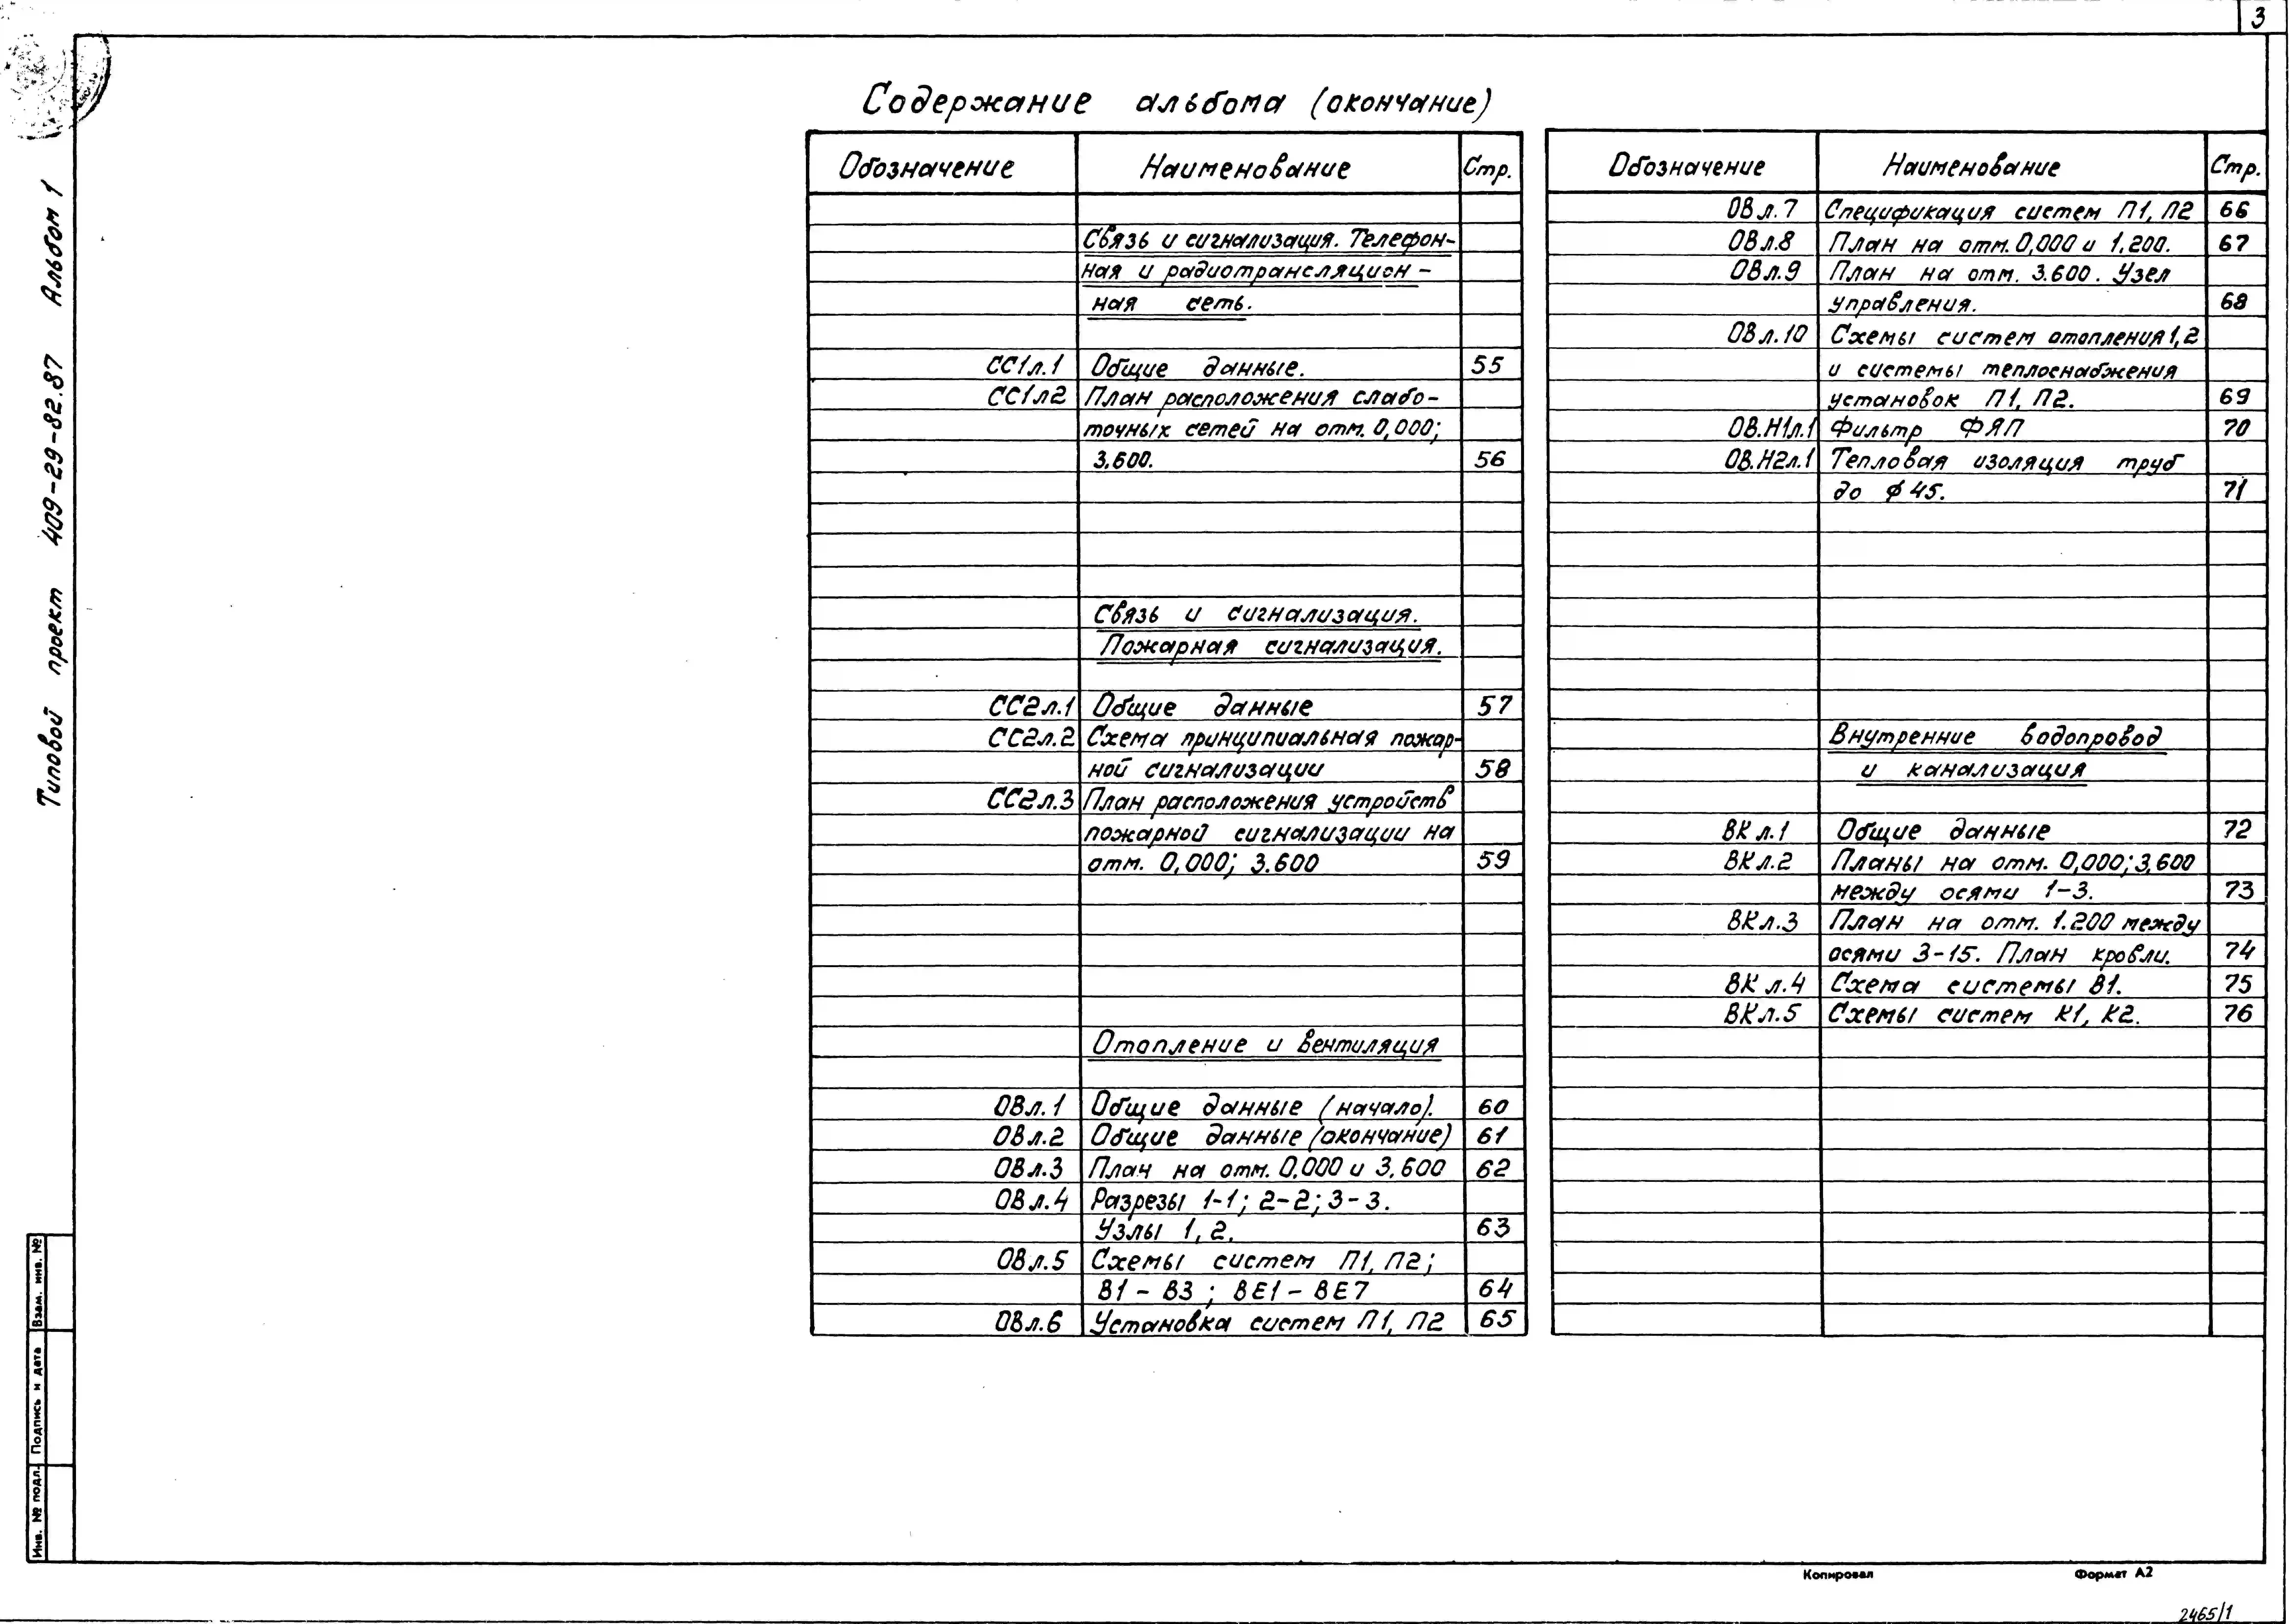 3
Типовой проект 409-29-82.87 Альбом 1
Содержание альбома (окончание)
Обозначение Наименование Стр.
Связь и сигнализация. Телефон-
ная и радиотрансляцион-
ная сеть.
СС1л.1 Общие данные. 55
СС1л2 План расположения слабо-
точных сетей на отм. 0,000;
3.600. 56
Связь и сигнализация.
Пожарная сигнализация.
СС2л.1 Общие данные 57
СС2л.2 Схема принципиальная пожар-
ной сигнализации 58
СС2л.3 План расположения устройств
пожарной сигнализации на
отм. 0,000; 3.600 59
Отопление и вентиляция
ОВл.1 Общие данные (начало). 60
ОВл.2 Общие данные (окончание) 61
ОВл.3 План на отм. 0.000 и 3.600 62
ОВл.4 Разрезы 1-1; 2-2; 3-3.
Узлы 1, 2. 63
ОВл.5 Схемы систем П1, П2;
В1 - В3 ; ВЕ1 - ВЕ7 64
ОВл.6 Установка систем П1, П2 65
Обозначение Наименование Стр.
ОВл.7 Спецификация систем П1, П2 66
ОВл.8 План на отм. 0,000 и 1.200. 67
ОВл.9 План на отм. 3.600. Узел
управления. 68
ОВл.10 Схемы систем отопления 1,2
и системы теплоснабжения
установок П1, П2. 69
ОВ.Н1л.1 Фильтр ФЯП 70
ОВ.Н2л.1 Тепловая изоляция труб
до ϕ 45. 71
Внутренние водопровод
и канализация
ВКл.1 Общие данные 72
ВКл.2 Планы на отм. 0,000; 3,600
между осями 1-3. 73
ВКл.3 План на отм. 1.200 между
осями 3-15. План кровли. 74
ВКл.4 Схема системы В1. 75
ВКл.5 Схемы систем К1, К2. 76
Взам. инв. №
Подпись и дата
Инв. № подл.
Копировал Формат А2
2465/1